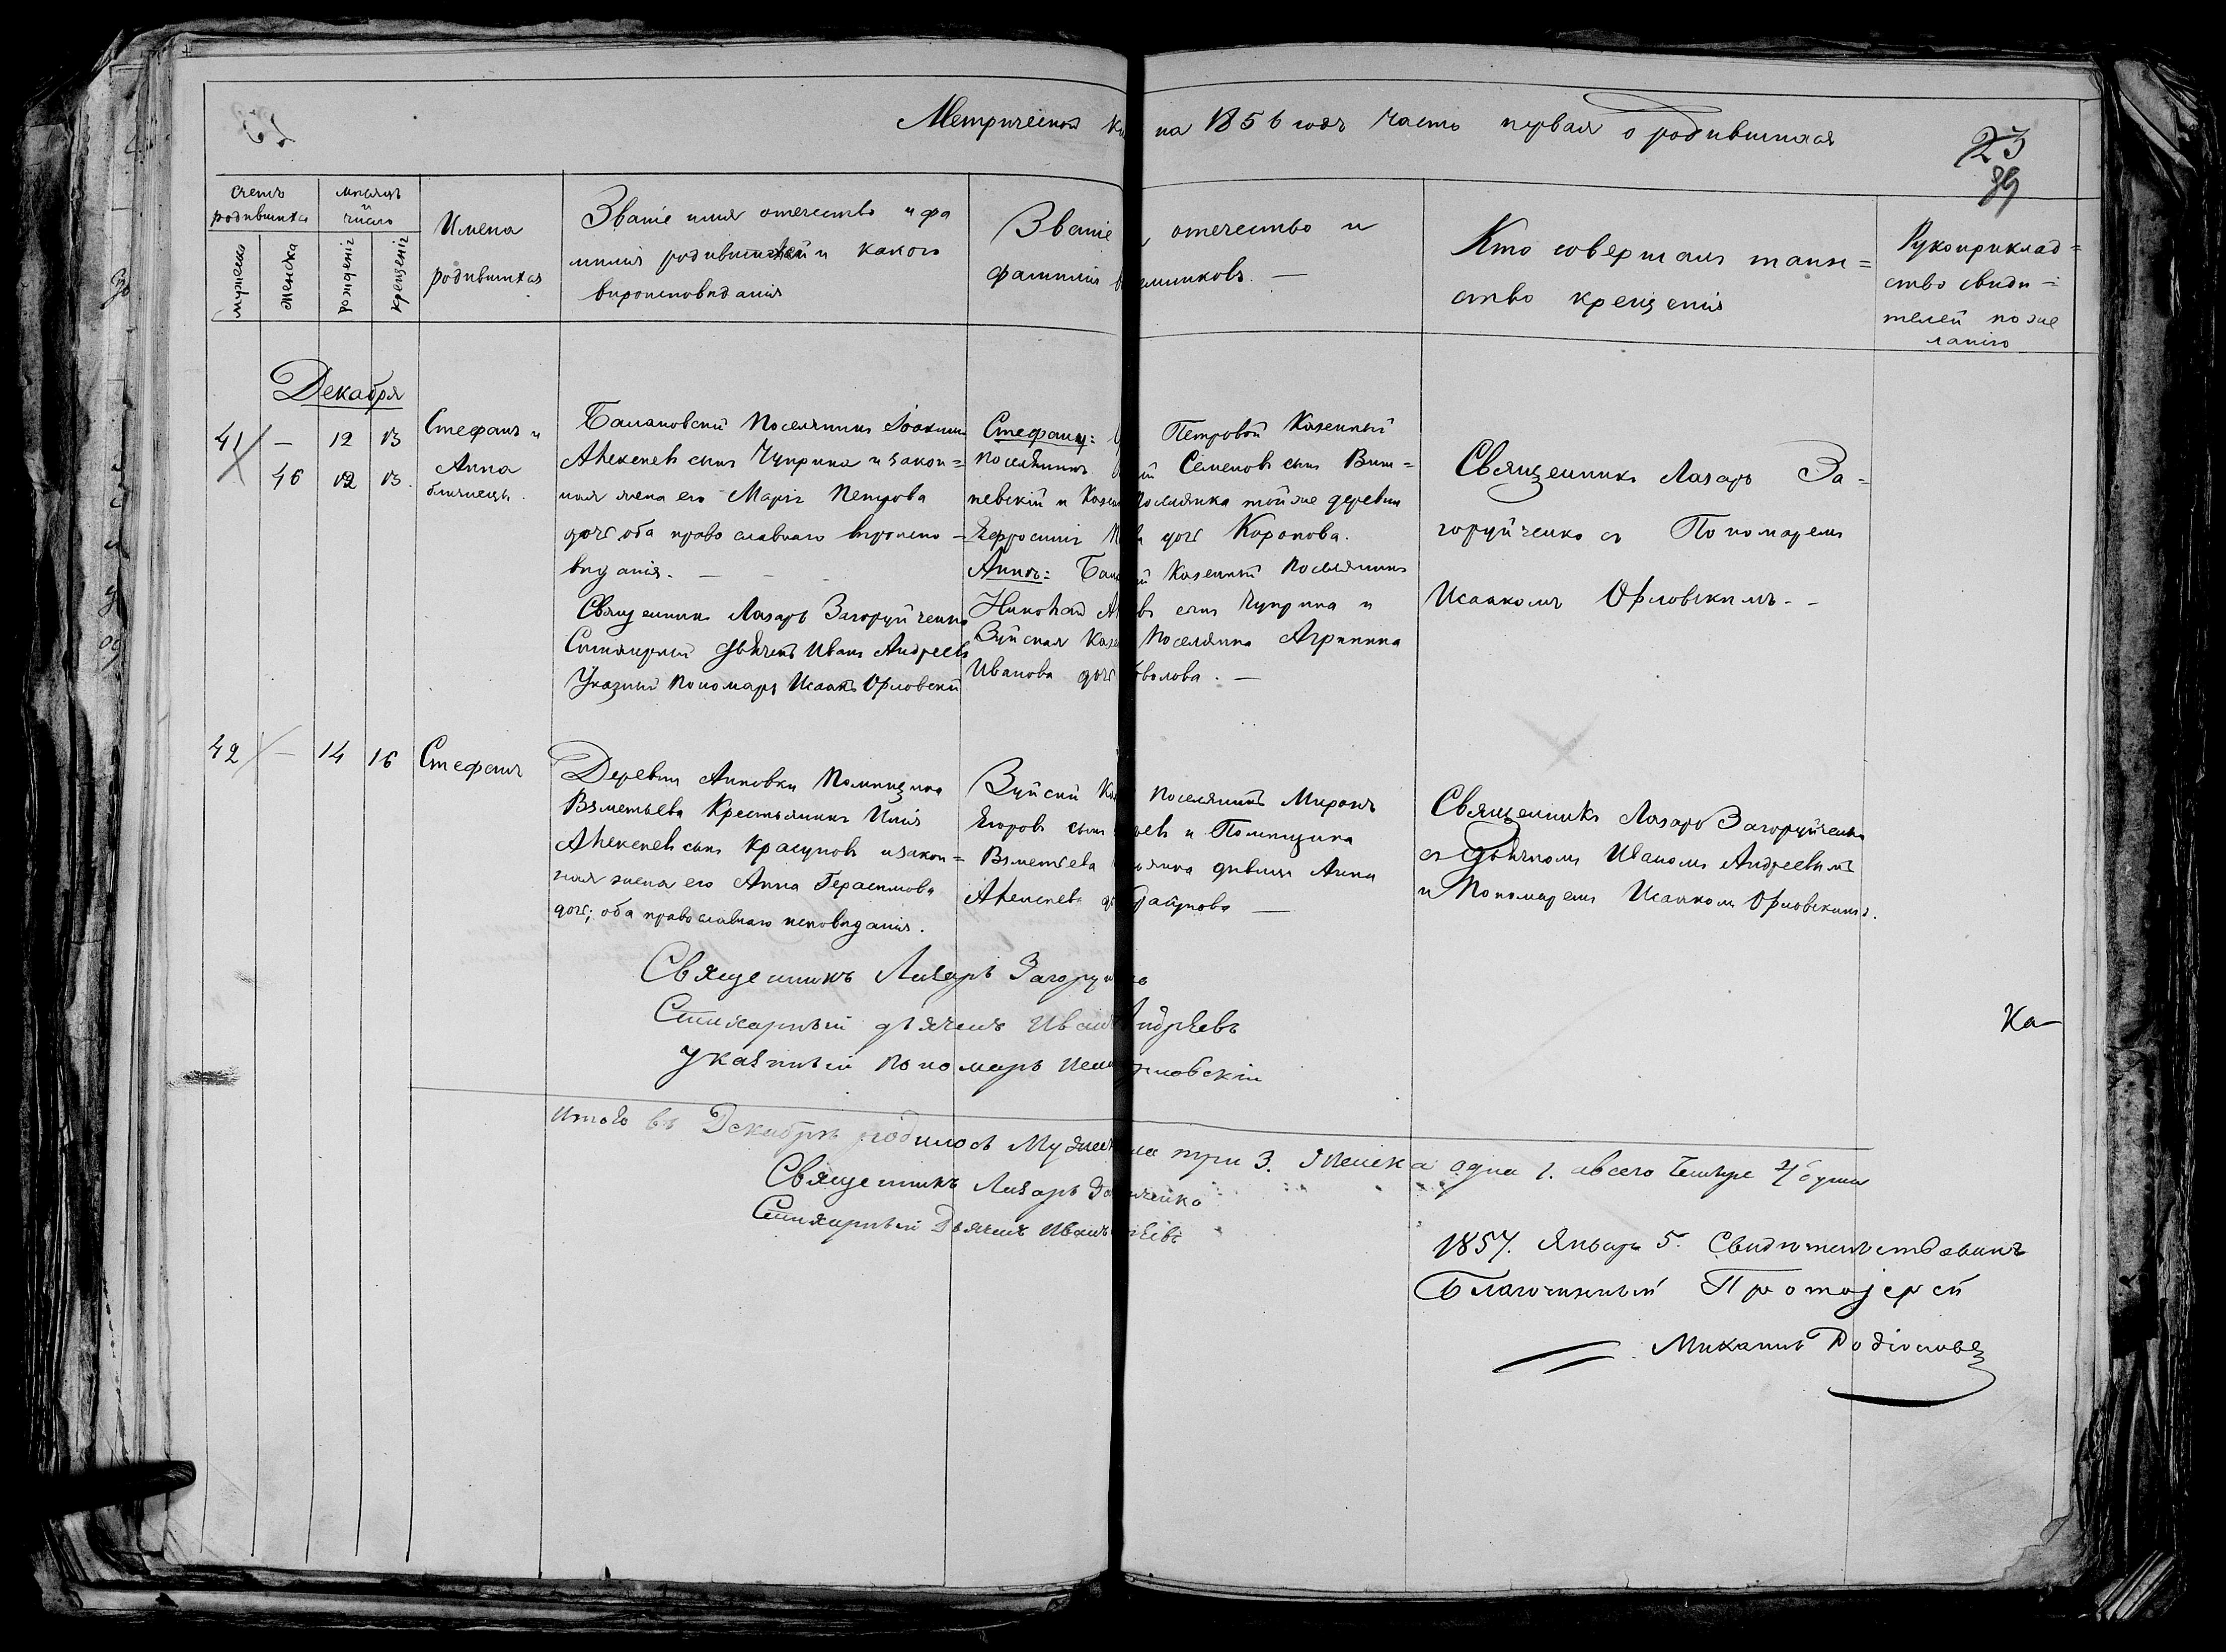 Метрической на 1856 годъ часть первая о родившихся
23
89
счетъ родившихся
мѣсяцъ и число
мужеска
женска
рожденія
крещенія
Имена
родившихся
Званіе имя отечество и фа
милія родителей и какого
вѣроисповѣданія
Званіе отечество и
фамилія
Кто совершалъ таин=
ство крещенія
Рукоприклад=
ство свидѣ=
телей по же
ланію
Декабря
41 — 12 13
46 12 13.
Стефанъ и
Анна
близнецы.
Балановскій поселянинъ Іоакимъ
Алексѣевъ сынъ Чуприна и закон=
ная жена его Марія Петрова
дочь оба православнаго вѣроиспо=
вѣданія. —
Священникъ Лазарь Загоруйченко
Стихарный дьячекъ Иванъ Андреевъ
Указный пономарь Исаакъ Орловскій
Стефану: Петровой Казенный
поселянинъ Семеновъ сынъ Виш=
невскій и поселянка тойже деревни
Ефросинія дочь Коропова.
Аннѣ: Казенный поселянинъ
Николай сынъ Чуприна и
Зуйская поселянка Агрипина
Иванова —
Священникъ Лазарь За=
горуйченко съ Пономаремъ
Исаакомъ Орловскимъ. -
42 — 14 16 Стефанъ
Деревни Анновки помѣщика
Взметьева Крестьянинъ Илія
Алексѣевъ сынъ Красуновъ и закон=
ная жена его Анна Герасимова
дочь; оба православнаго исповѣданія.
Зуйскій поселянинъ Миронъ
Егоровъ сынъ и Помѣщика
Взметьева дѣвица Анна
Алексѣева —
Священникъ Лазарь Загоруйченко
съ Дьячкомъ Иваномъ Андреевымъ
и Пономаремъ Исаакомъ Орловскимъ.
Священникъ Лазарь
Стихарный дьячекъ Иванъ Андрѣевъ
Указный пономарь
Ка
Итого въ Декабрѣ родилось Мужеска три 3. Женска одна 1. а всего четыре 4 души
Священникъ Лазарь
Стихарный Дьячекъ Иванъ
1857. Январь 5. Свидѣтельствовалъ
Благочинный Протоіерей
Михаилъ Родіоновъ